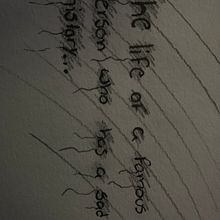 the life of a famous
person who has a
history...